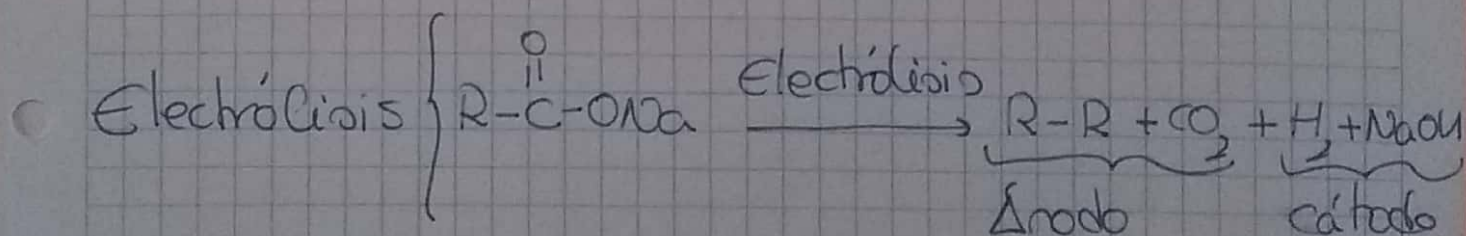 O
||
Electrólisis { R-C-ONa Electrólisis → R-R + CO₂ + H₂ + NaOH
Ánodo cátodo